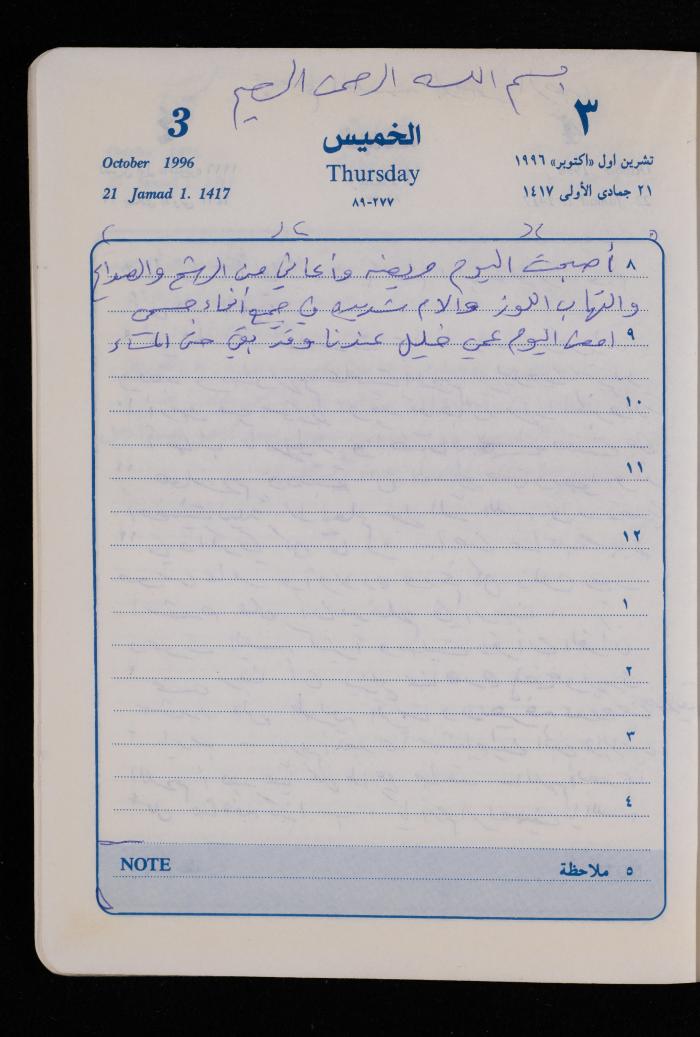 بسم الله الرحمن الرحيم
3
٣
October 1996
الخميس
تشرين اول «اكتوبر» ١٩٩٦
21 Jamad 1. 1417
Thursday
٢١ جمادى الأولى ١٤١٧
٨٩-٢٧٧
٨ أصبحت اليوم مريضه وأعاني من الرشح والصداع
والتهاب اللوز والام شديده في جميع أنحاء جسمي
٩ اليوم عمي خليل عندنا وقد بقي حتى المساء
١٠
١١
١٢
١
٢
٣
٤
NOTE
٥ ملاحظة